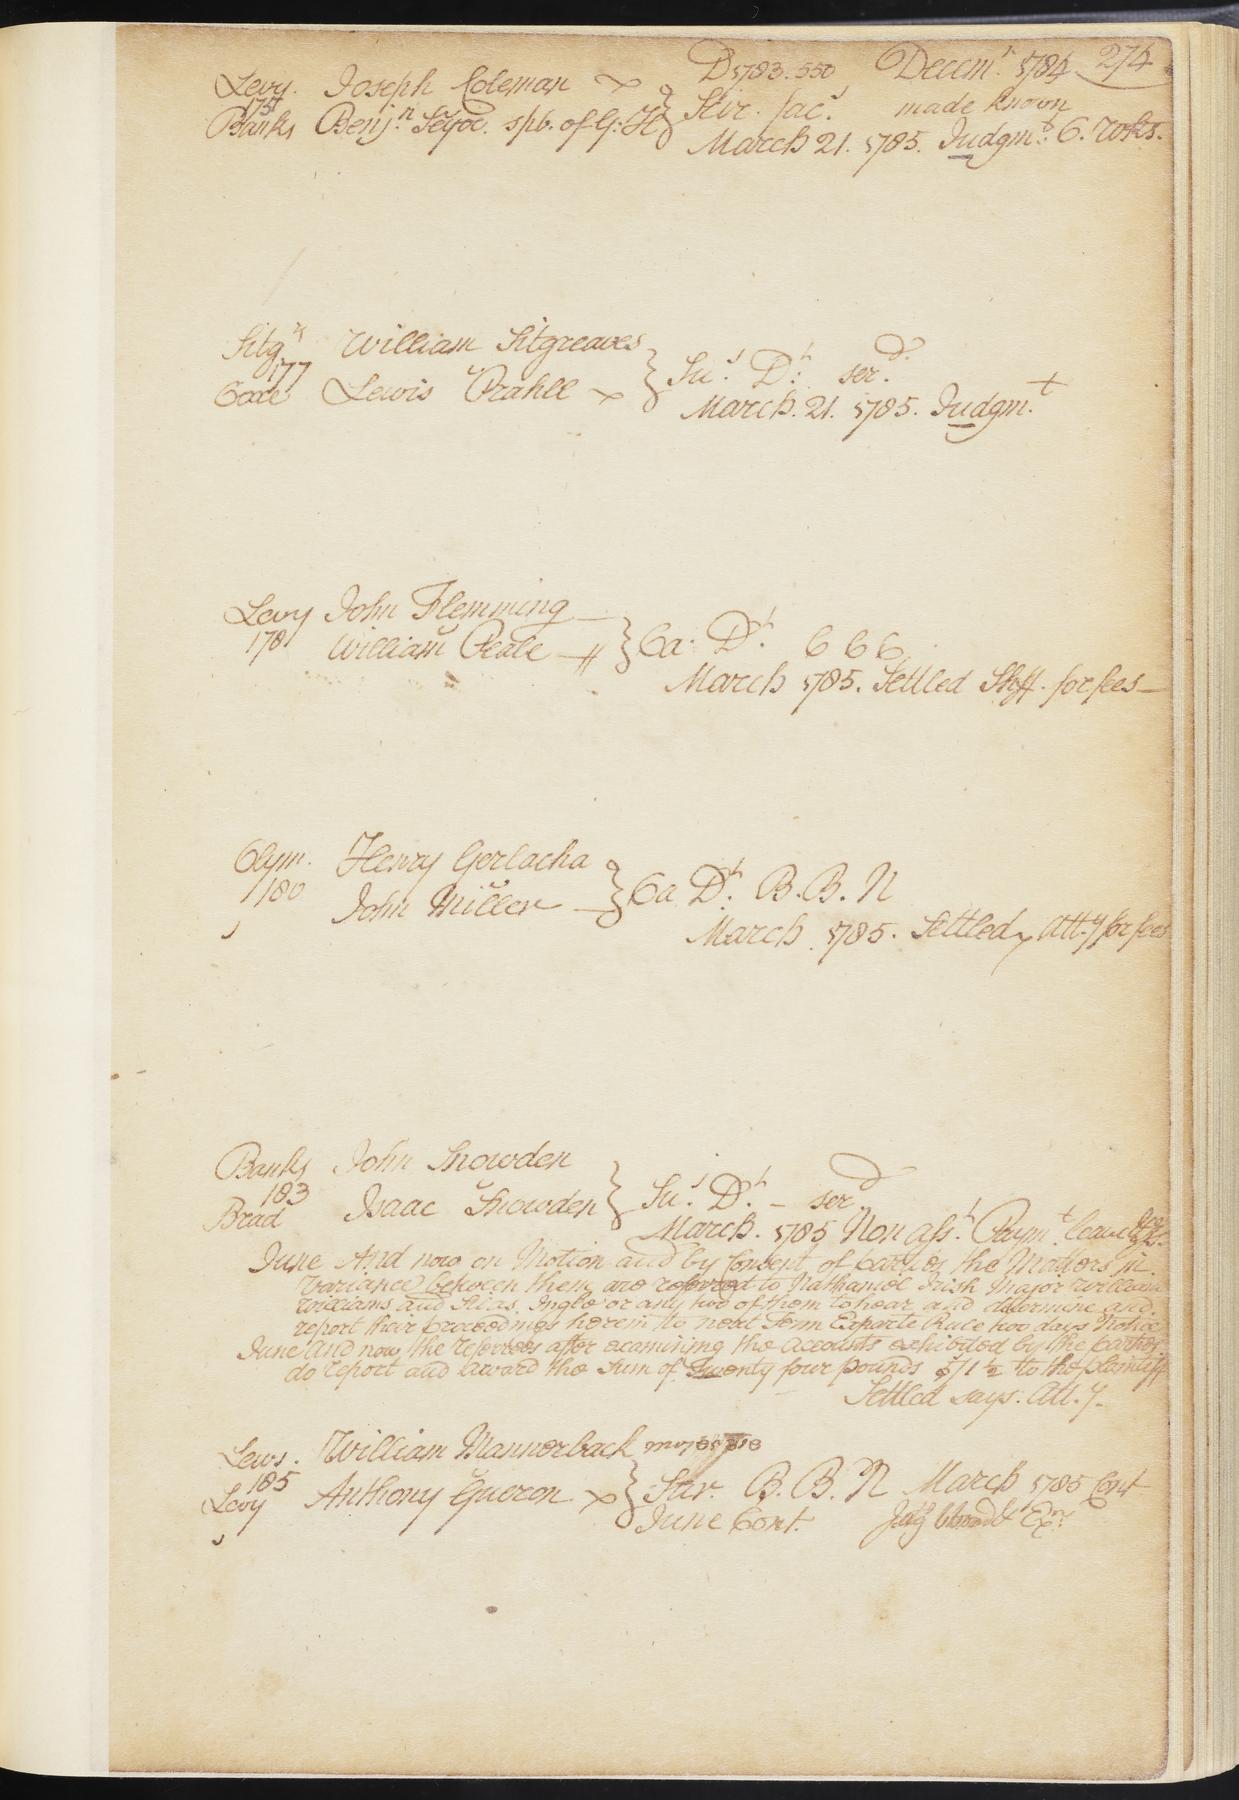 D 1783. 550 Decem.r 1784 274
Levy. Joseph Coleman
175
Banks Benj.n spb. of G: H } Scir. fac.s made known
March 21. 1785. Judgm.t 6. wks.
Sitg.s William Sitgreaves
177
Coxe Lewis Prahll } Su.s D.t ser.d
March. 21. 1785. Judgm.t
Levy John Flemming
178 William Peale } Ca. D.t C C C
March 1785. Settled Shff. for fees
Clym. Henry Gerlacha
180 John Miller } Ca D.t B. B. N
March 1785. Settled, Att.y for fees
Banks John Snowden
183
Brad Isaac Snowden } Su.s D.t - ser.d
March. 1785 Non ass.t Paym.t leave
June And now on Motion and by Consent of parties the Matters in
variance between them are referred to Nathaniel Irish Major William
Williams and Silas Ingle or any two of them to hear and determine and
report their proceedings herein to next Term Exparte Rule two days Notice
June And now the referrees after examining the accounts exhibited by the parties
do report and award the Sum of Twenty four pounds 5/1 ½ to the plaintiff
Settled says. Att.y.
Lews. William Mannerback
185
Levy Anthony Gueron } Scir. B. B. N March 1785 Cont
June Cont.